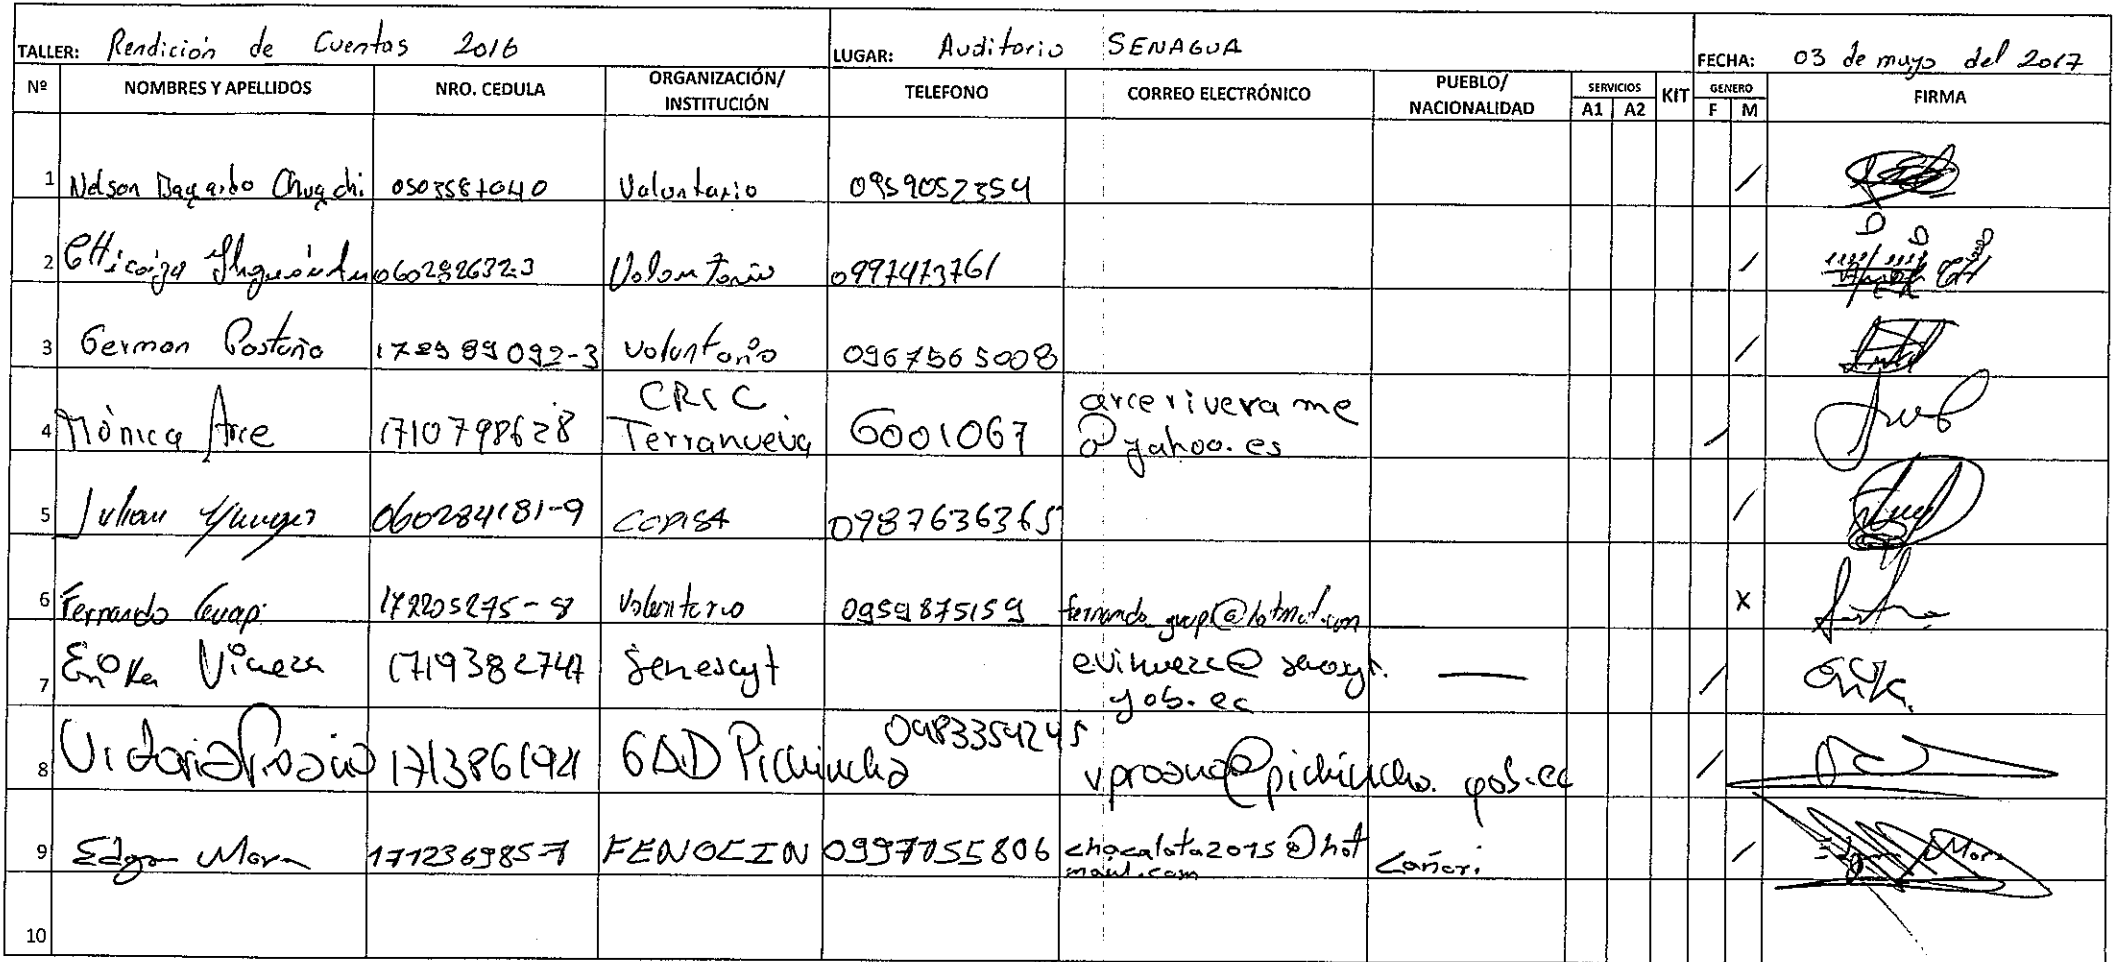 TALLER: Rendición de Cuentas 2016 LUGAR: Auditorio SENAGUA FECHA: 03 de mayo del 2017
Nº NOMBRES Y APELLIDOS NRO. CEDULA ORGANIZACIÓN/ INSTITUCIÓN TELEFONO CORREO ELECTRÓNICO PUEBLO/ NACIONALIDAD SERVICIOS A1 A2 KIT GENERO F M FIRMA
1 Nelson 0503587040 Voluntario 0959052354 /
2 060282632-3 Voluntario 0997473761 /
3 German 172989092-3 voluntario 0967565008 /
4 Mònica Arce 1710798628 CRIC Terranueva 6001067 arceriverame
@yahoo.es /
5 Julian 060284181-9 COPISA 0987636365 /
6 Fernando 172205275-8 Voluntario 0959875159 X
7 Erika 1719382747 Senescyt —
gob.ec /
8 Victoria Proaño 1713861941 GAD Pichincha 0983354245 vproano@pichincha.gob.ec /
9 Edgar Mora 171236985-7 FENOCIN 0997055806 chocalota2015@hot
mail.com Cañari /
10